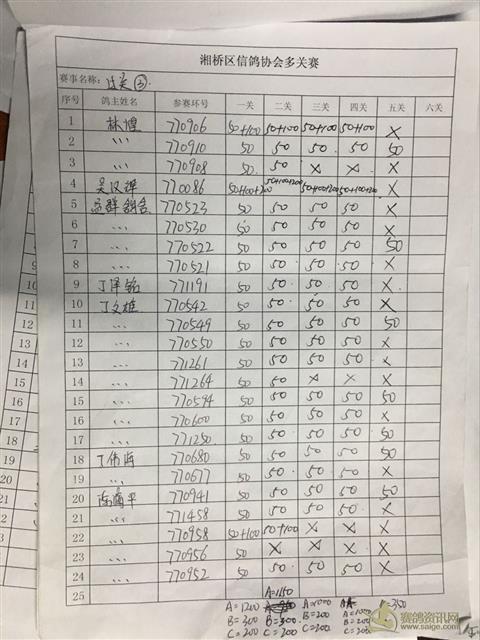 湘桥区信鸽协会多关赛
赛事名称: 过关③
序号 鸽主姓名 参赛环号 一关 二关 三关 四关 五关 六关
1 林煌 770906 50+100 50+100 50+100 50+100 ×
2 " 770910 50 50 50 50 50
3 " 770908 50 50 × × ×
4 770086 50+100+200 50+100+200 50+100+200 50+100+200 ×
5 770523 50 50 50 50 ×
6 " 770530 50 50 50 50 ×
7 " 770522 50 50 50 50 50
8 " 770521 50 50 50 50 ×
9 771191 50 50 50 50 ×
10 丁文雄 770542 50 50 50 50 ×
11 " 770549 50 50 50 50 50
12 " 770550 50 50 50 50 ×
13 " 771261 50 50 50 50 ×
14 " 771264 50 50 × × ×
15 " 770594 50 50 50 50 50
16 " 770600 50 50 50 50 ×
17 " 771250 50 50 50 50 50
18 丁伟海 770680 50 50 50 50 50
19 " 770677 50 50 50 50 ×
20 770941 50 50 50 50 50
21 " 771458 50 50 50 50 ×
22 " 770958 50+100 50+100 × × ×
23 " 770956 50 × × × ×
24 " 770952 50 50 50 50 ×
25
A=1150
A=1200 A=1000 =350
B=300 B=300 B=200 A=1000
C=200 C=200 C=200 B=200
赛鸽资讯网
www.saige.com